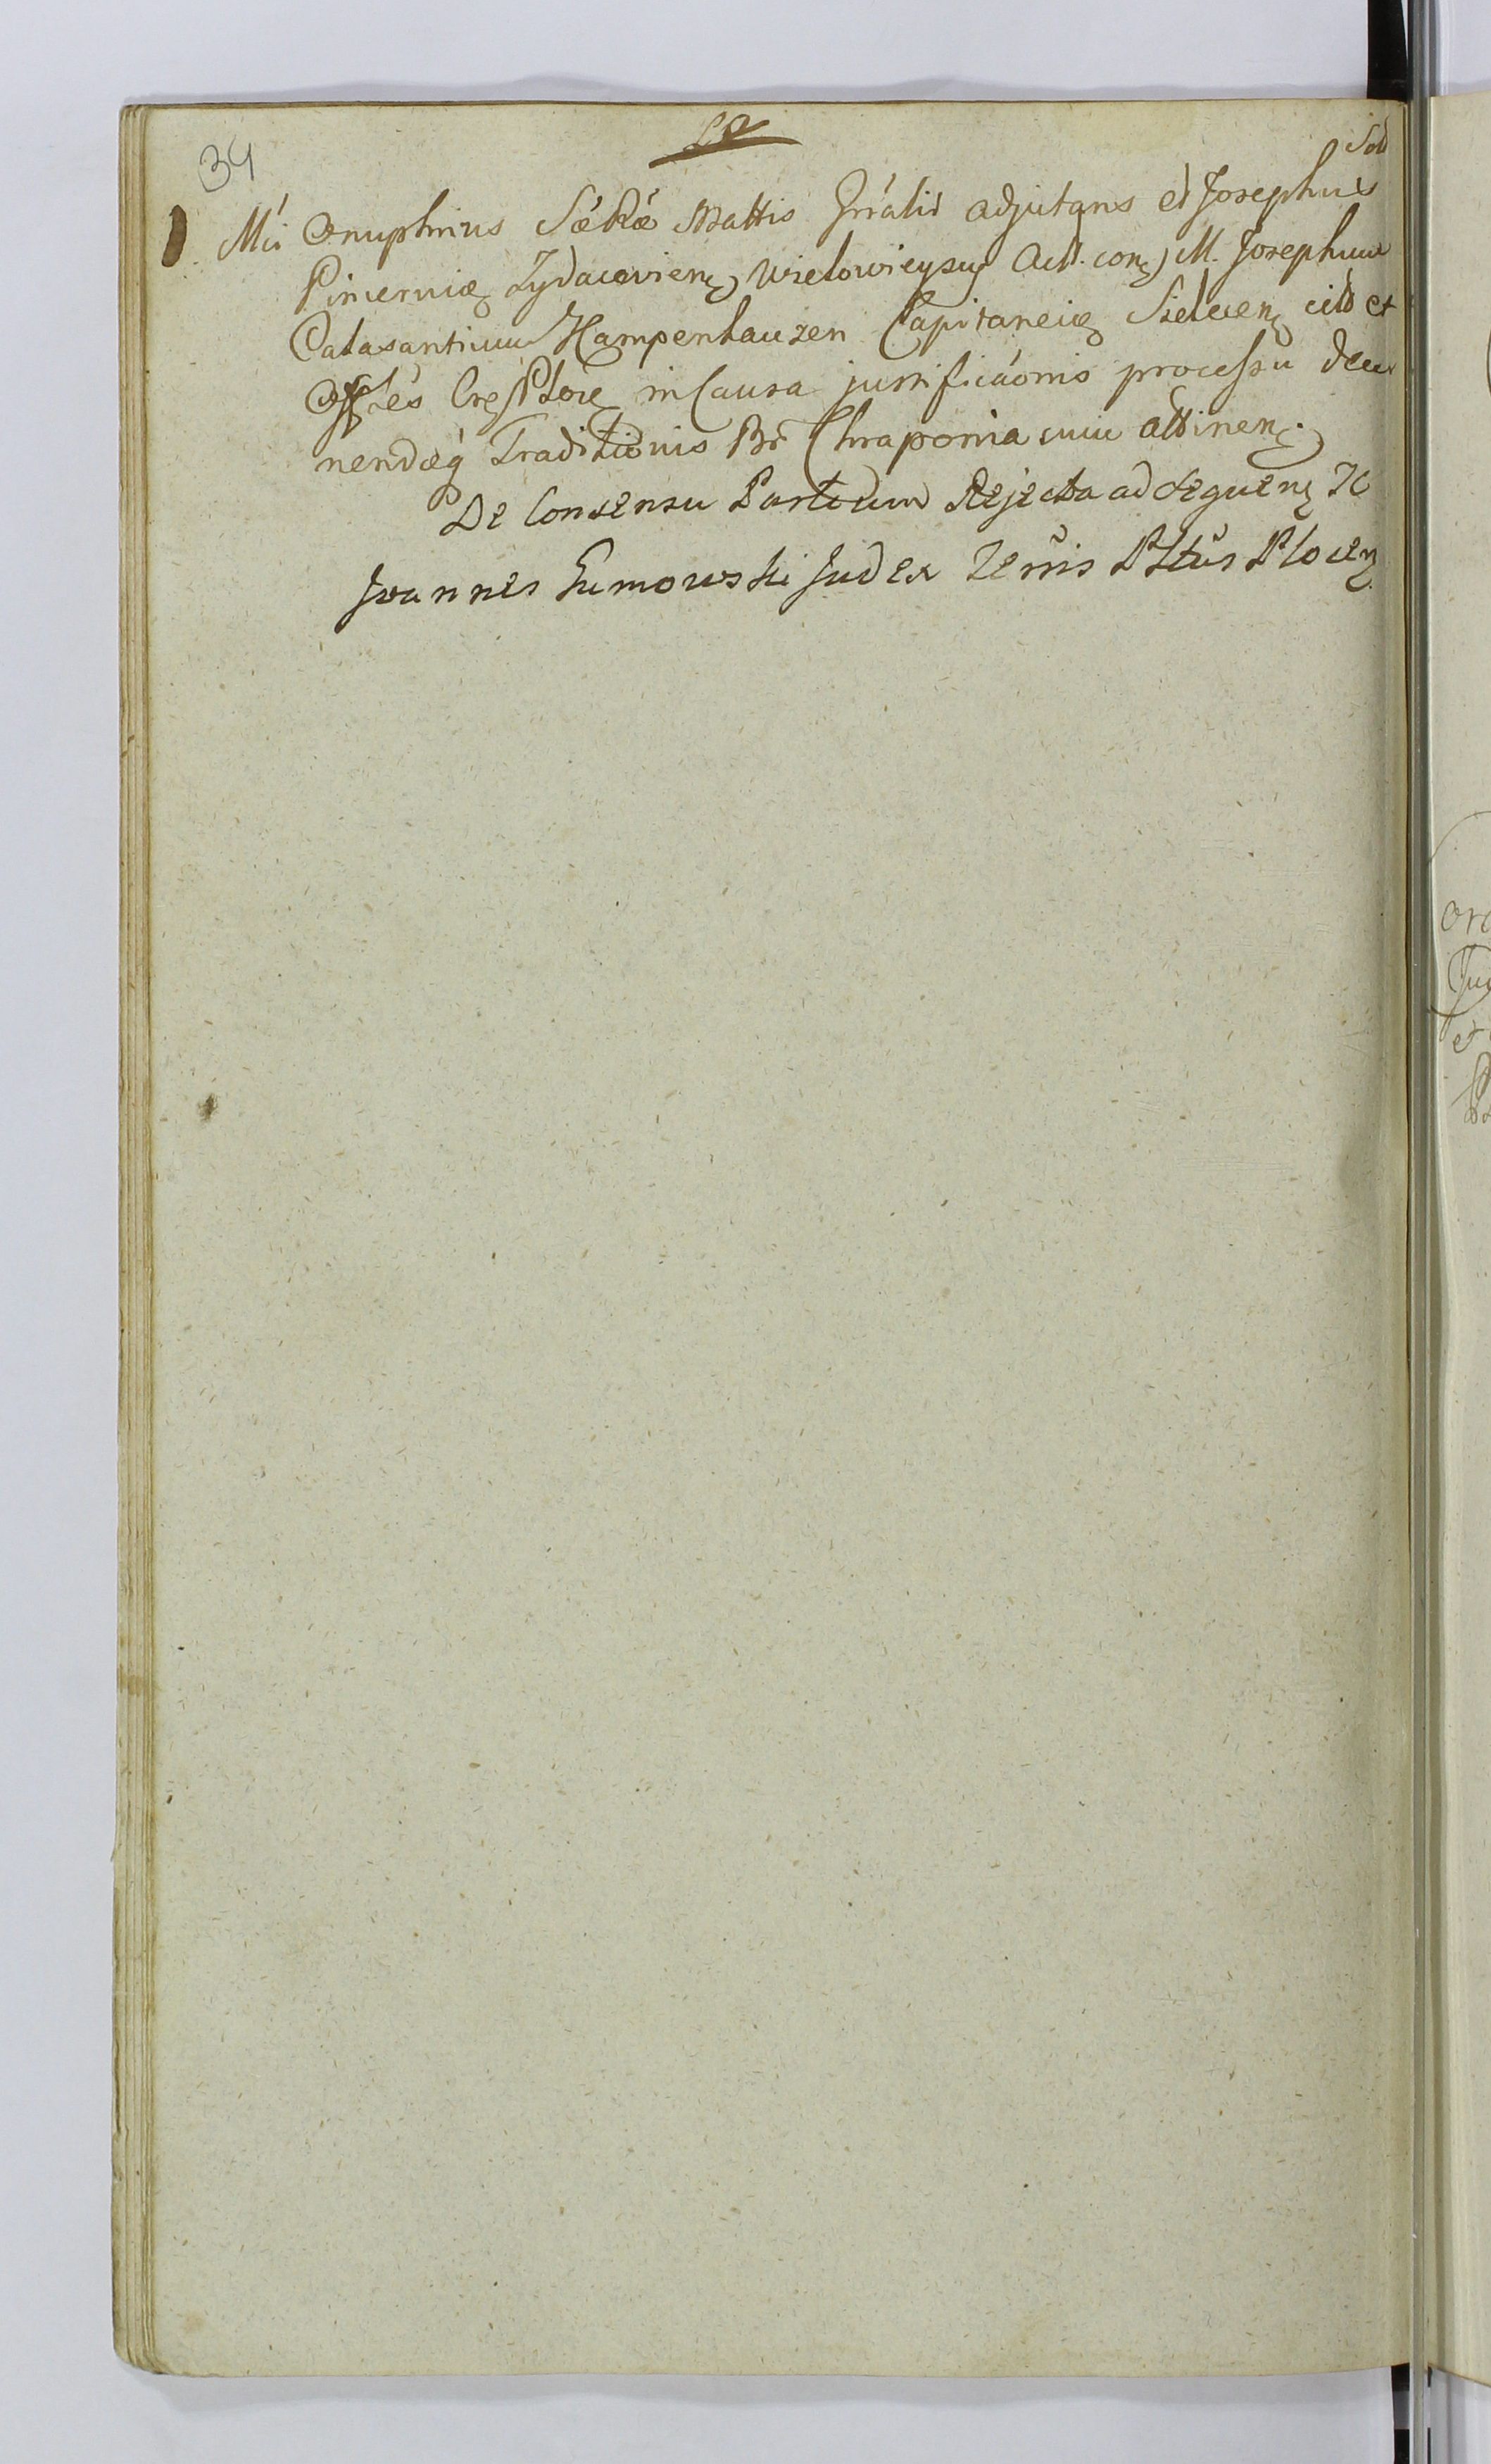 34
Sol
Mci Onuphrius Sacae Rae Mattis Gnralis Adjutans et Josephus
Pincernię Zydaczovienę Wielowieyscy Act. con. M. Josephum
Calasantium Hampenhauzen Capitaneię Sielcenę citt et
in Causa justificaonis processu decer
nendaeq Traditionis Br Chraponia cum attinenę.
De Consensu Partium Rejecta ad sequenę
Joannes Gumowski Judex Zemis Pltus Plocenę